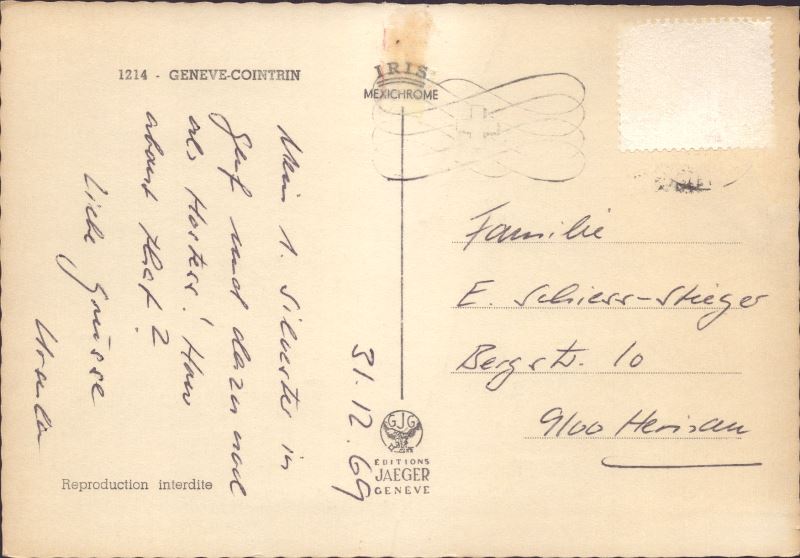 1214 - GENEVE-COINTRIN
IRIS
MEXICHROME
31. 12. 69
Mein 1. Silvester in
Genf und dazu noch
als Hostess! How
about that?
Liebe Grüsse
Ursula
Familie
E. Schiess-Stieger
Bergstr. 10
9100 Herisau
GJG
ÉDITIONS
JAEGER
GENÈVE
Reproduction interdite